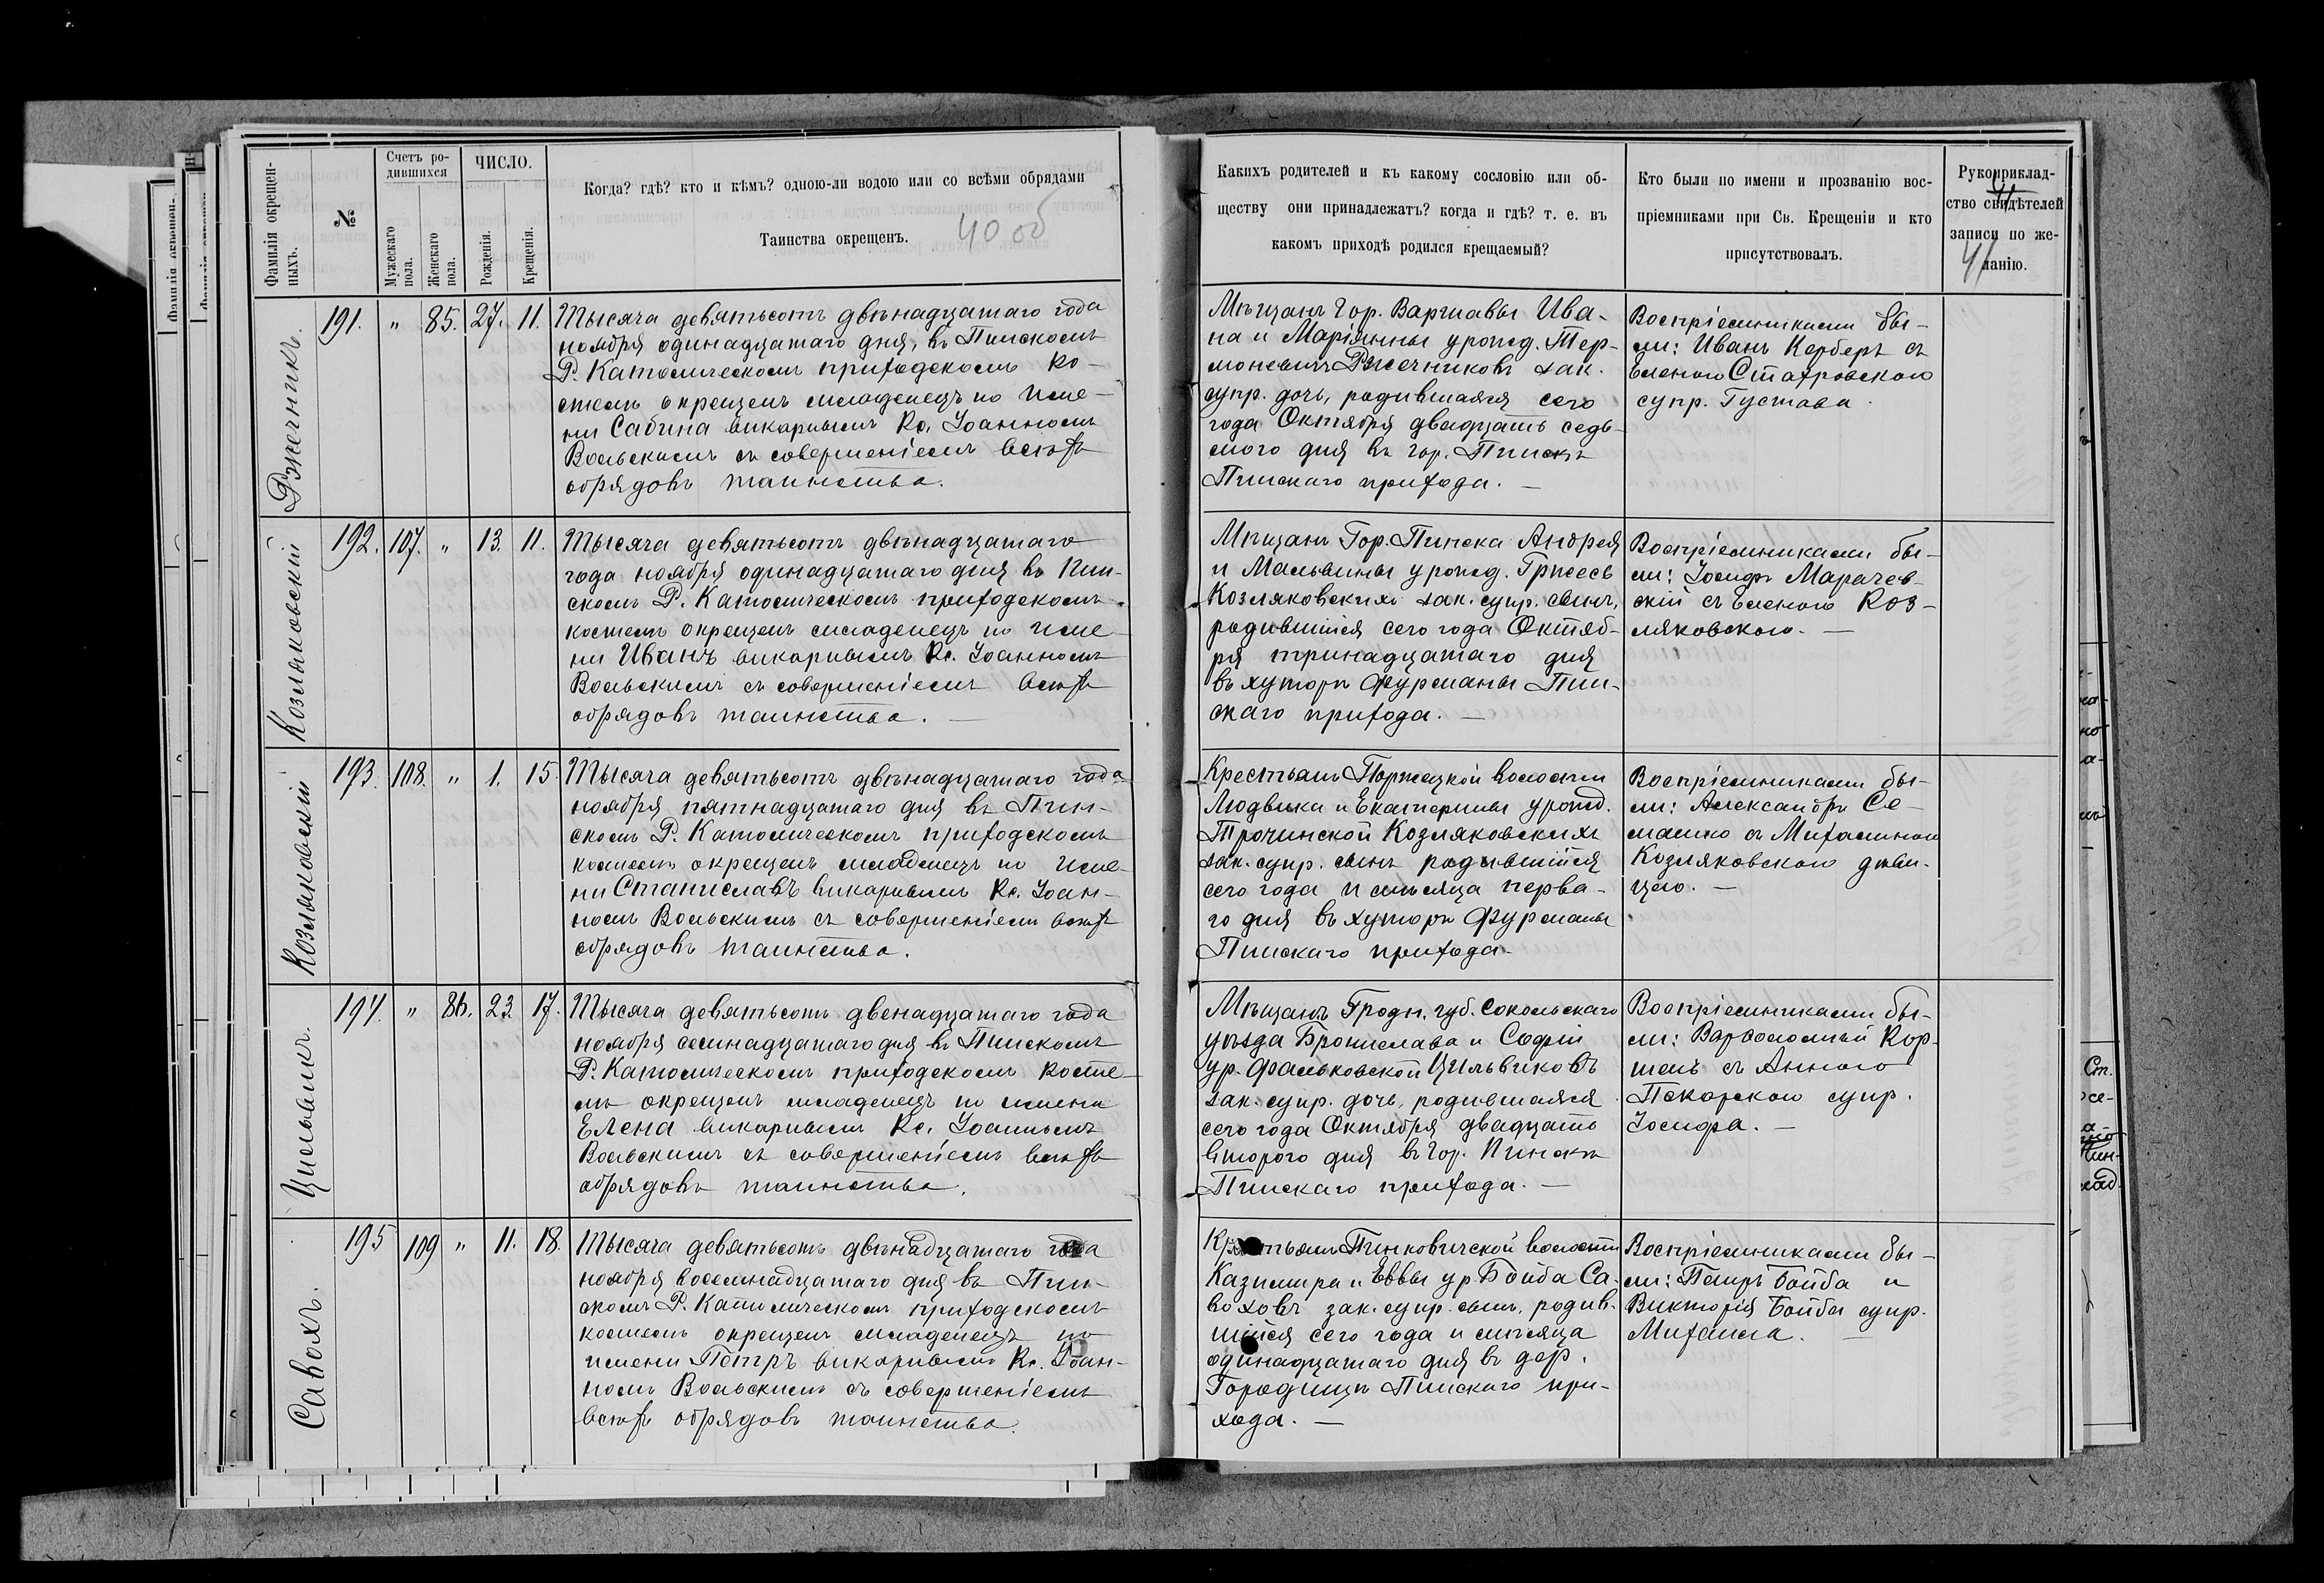 Фамилія окрещен-
ныхъ.
№
Счетъ ро-
дившихся
Мужескаго
пола.
Женскаго
пола.
ЧИСЛО.
Рожденія.
Крещенія.
Когда? гдѣ? кто и кѣмъ? одною-ли водою или со всѣми обрядами
Таинства окрещенъ.
40 об
Какихъ родителей и къ какому сословію или об-
ществу они принадлежатъ? когда и гдѣ? т. е. въ
какомъ приходѣ родился крещаемый?
Кто были по имени и прозванію вос-
пріемниками при Св. Крещеніи и кто
присутствовалъ.
Рукоприклад-
ство свидѣтелей
записи по же-
ланію.
41
Ржечникъ.
191. " 85. 27. 11.
Тысяча девятьсотъ двѣнадцатаго года
ноября одинадцатаго дня, въ Пинскомъ
Р. Католическомъ приходскомъ ко-
стелѣ окрещенъ младенецъ по име-
ни Сабина викаріемъ Кс. Іоанномъ
Вольскимъ съ совершеніемъ всѣхъ
обрядовъ таинства.
Мѣщанъ Гор. Варшавы Ива-
на и Маріянны урожд. Тер-
моневичъ Ржечниковъ зак.
супр. дочь, родившаяся сего
года Октября двадцать седь-
мого дня въ гор. Пинскѣ
Пинскаго прихода. —
Воспріемниками бы-
ли: Иванъ Керберъ съ
Еленою Стахровскою
супр. Густава.
Козляковскій
192. 107. " 13. 11.
Тысяча девятьсотъ двѣнадцатаго
года ноября одинадцатаго дня въ Пин-
скомъ Р. Католическомъ приходскомъ
костелѣ окрещенъ младенецъ по име-
ни Иванъ викаріемъ Кс. Іоанномъ
Вольскимъ съ совершеніемъ всѣхъ
обрядовъ таинства. —
Мѣщанъ Гор. Пинска Андрея
и Мальвины урожд. Гржесь
Козляковскихъ зак. супр. сынъ,
родившійся сего года Октяб-
ря тринадцатаго дня
въ хуторѣ Фурманы Пин-
скаго прихода. —
Воспріемниками бы-
ли: Іосифъ Марачев-
скій съ Еленою Коз-
ляковскою. —
Козляковскій
193. 108. " 1. 15.
Тысяча девятьсотъ двѣнадцатаго года
ноября пятнадцатаго дня въ Пин-
скомъ Р. Католическомъ приходскомъ
костелѣ окрещенъ младенецъ по име-
ни Станиславъ викаріемъ Кс. Іоан-
номъ Вольскимъ съ совершеніемъ всѣхъ
обрядовъ таинства.
Крестьянъ Порѣцкой волости
Людвика и Екатерины урожд.
Трочинской Козляковскихъ
зак. супр. сынъ родившійся
сего года и мѣсяца перва-
го дня въ хуторѣ Фурманы
Пинскаго прихода.
Воспріемниками бы-
ли: Александръ Се-
машко съ Михалиною
Козляковскою дѣви-
цею. —
Цильвикъ.
194. " 86. 23. 17.
Тысяча девятьсотъ двенадцатаго года
ноября семнадцатаго дня въ Пинскомъ
Р. Католическомъ приходскомъ косте-
лѣ окрещенъ младенецъ по имени
Елена викаріемъ Кс. Іоанномъ
Вольскимъ съ совершеніемъ всѣхъ
обрядовъ таинства.
Мѣщанъ Гродн. губ. Сокольскаго
уѣзда Бронислава и Софіи
ур. Фальковской Цильвиковъ
зак. супр. дочь, родившаяся
сего года Октября двадцать
второго дня въ гор. Пинскѣ
Пинскаго прихода. —
Воспріемниками бы-
ли: Варфоломѣй Кор-
шенъ съ Анною
Пекарскою супр.
Іосифа. —
Савохъ.
195 109 " 11. 18.
Тысяча девятьсотъ двѣнадцатаго года
ноября восемнадцатаго дня въ Пин-
скомъ Р. Католическомъ приходскомъ
костелѣ окрещенъ младенецъ по
имени Петръ викаріемъ Кс. Іоан-
номъ Вольскимъ съ совершеніемъ
всѣхъ обрядовъ таинства.
Крестьянъ Пинковичской волости
Казимира и Еввы ур. Бойба Са-
воховъ зак. супр. сынъ, родив-
шійся сего года и мѣсяца
одинадцатаго дня въ дер.
Городище Пинскаго при-
хода. —
Воспріемниками бы-
ли: Петръ Бойба и
Викторія Бойба супр.
Михаила. —